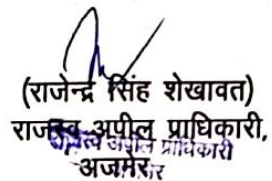 (राजेन्द्र सिंह शेखावत)
राजस्व अपील प्राधिकारी,
राजस्व अपील प्राधिकारी
अजमेर